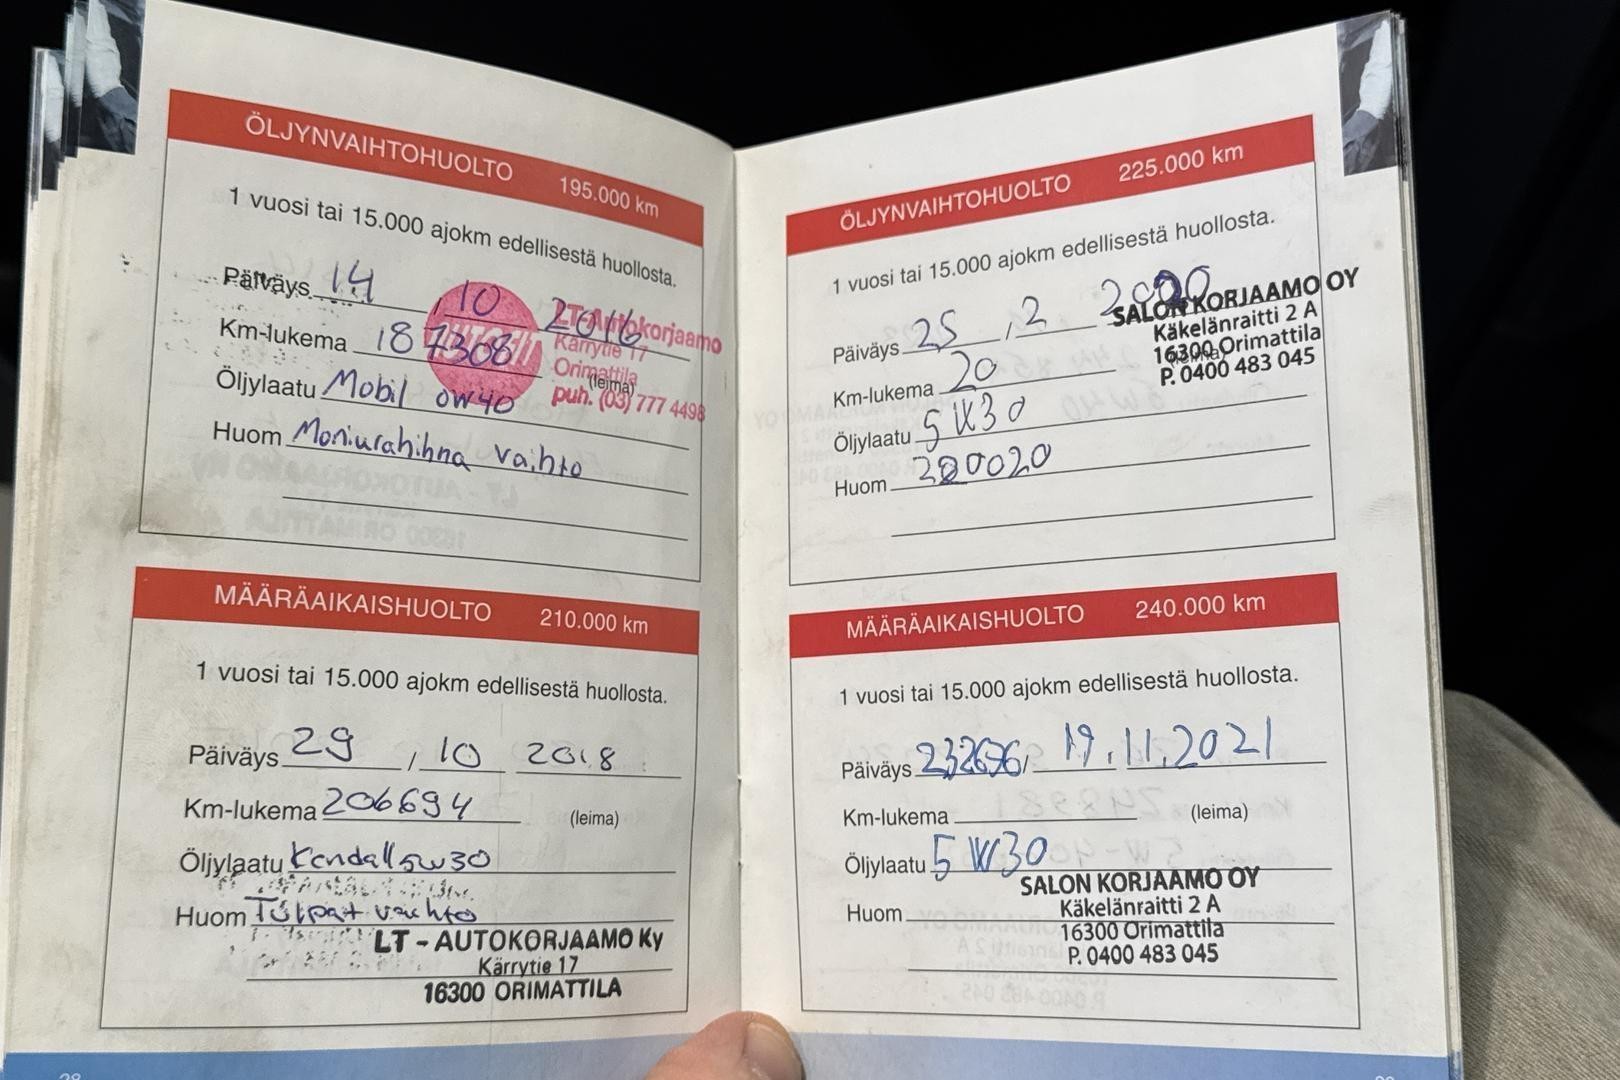 ÖLJYNVAIHTOHUOLTO 195.000 km
1 vuosi tai 15.000 ajokm edellisestä huollosta.
Päiväys 14 , 10 2016
LT Autokorjaamo
Km-lukema 187308
Kärrytie 17
Orimattila
(leima)
puh. (03) 777 4498
Öljylaatu Mobil 0W40
Huom Moniurahihna vaihto
MÄÄRÄAIKAISHUOLTO 210.000 km
1 vuosi tai 15.000 ajokm edellisestä huollosta.
Päiväys 29 / 10 2018
Km-lukema 206694 (leima)
Öljylaatu Kendall 5W30
Huom Tulpat vaihto
LT - AUTOKORJAAMO Ky
Kärrytie 17
16300 ORIMATTILA
ÖLJYNVAIHTOHUOLTO 225.000 km
1 vuosi tai 15.000 ajokm edellisestä huollosta.
Päiväys 25 , 2 2020
SALON KORJAAMO OY
Käkelänraitti 2 A
16300 Orimattila
(leima)
P. 0400 483 045
Km-lukema 20
Öljylaatu 5W30
Huom
MÄÄRÄAIKAISHUOLTO 240.000 km
1 vuosi tai 15.000 ajokm edellisestä huollosta.
Päiväys / 19.11.2021
Km-lukema (leima)
Öljylaatu 5W30
Huom
SALON KORJAAMO OY
Käkelänraitti 2 A
16300 Orimattila
P. 0400 483 045